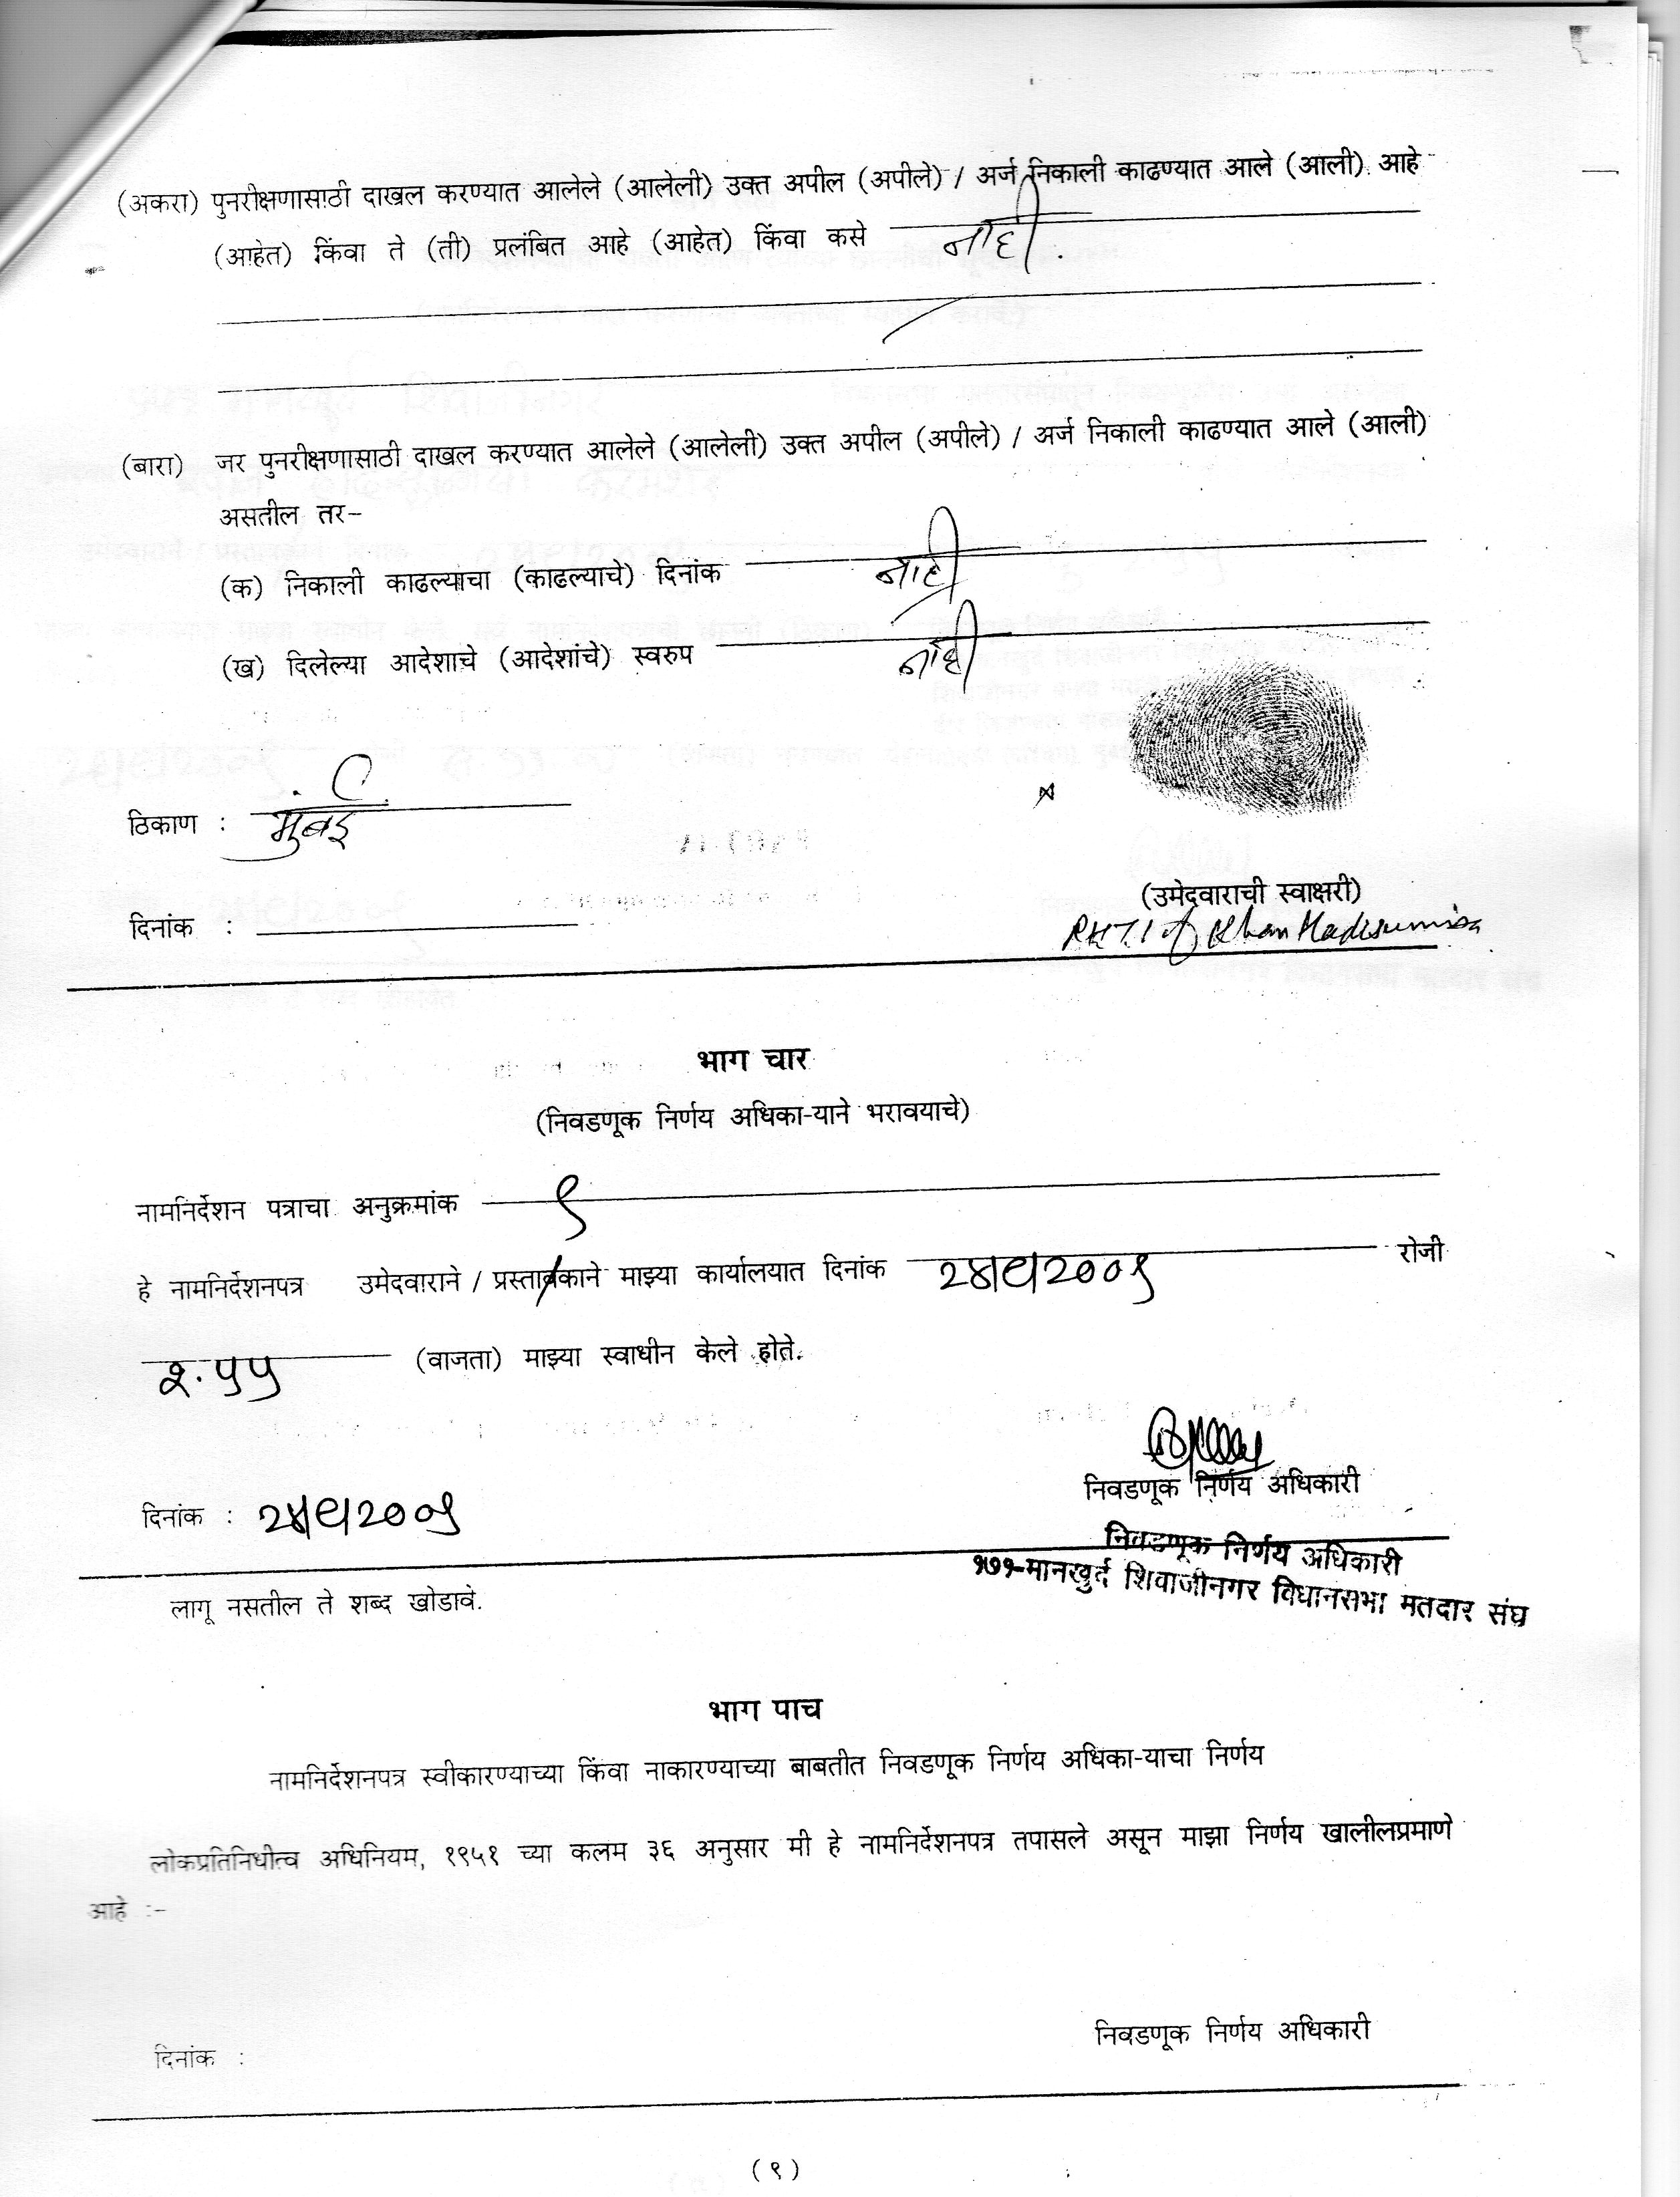 (अकरा) पुनरीक्षणासाठी दाखल करण्यात आलेले (आलेली) उक्त अपील (अपीले) / अर्ज निकाली काढण्यात आले (आली) आहे
(आहेत) किंवा ते (ती) प्रलंबित आहे (आहेत) किंवा कसे नाही.
(बारा) जर पुनरीक्षणासाठी दाखल करण्यात आलेले (आलेली) उक्त अपील (अपीले) / अर्ज निकाली काढण्यात आले (आली)
असतील तर-
(क) निकाली काढल्याचा (काढल्याचे) दिनांक नाही
(ख) दिलेल्या आदेशाचे (आदेशांचे) स्वरुप नाही
ठिकाण : मुंबई
(उमेदवाराची स्वाक्षरी)
दिनांक :
RHTI of Khan
भाग चार
(निवडणूक निर्णय अधिका-याने भरावयाचे)
नामनिर्देशन पत्राचा अनुक्रमांक ९
हे नामनिर्देशनपत्र उमेदवाराने / प्रस्तावकाने माझ्या कार्यालयात दिनांक २४/९/२००९ रोजी
२.५५ (वाजता) माझ्या स्वाधीन केले होते.
निवडणूक निर्णय अधिकारी
दिनांक : २४/९/२००९
निवडणूक निर्णय अधिकारी
१७१-मानखुर्द शिवाजीनगर विधानसभा मतदार संघ
लागू नसतील ते शब्द खोडावे.
भाग पाच
नामनिर्देशनपत्र स्वीकारण्याच्या किंवा नाकारण्याच्या बाबतीत निवडणूक निर्णय अधिका-याचा निर्णय
लोकप्रतिनिधीत्व अधिनियम, १९५१ च्या कलम ३६ अनुसार मी हे नामनिर्देशनपत्र तपासले असून माझा निर्णय खालीलप्रमाणे
आहे :-
निवडणूक निर्णय अधिकारी
दिनांक :
(९)